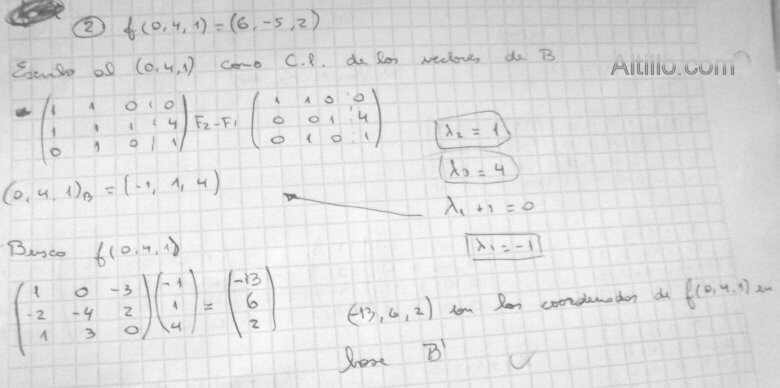 ② f(0,4,1)=(6,-5,2)
Escribo al (0,4,1) como C.l. de los vectores de B
Altillo.com
(1 1 0 ¦ 0) (1 1 0 ¦ 0)
(1 1 1 ¦ 4) F2-F1 (0 0 1 ¦ 4) λ2 = 1
(0 1 0 ¦ 1) (0 1 0 ¦ 1) λ3 = 4
(0,4,1)B = (-1, 1, 4) λ1 + 1 = 0
λ1 = -1
Busco f(0,4,1)
(1 0 -3) (-1) (-13)
(-2 -4 2) (1) = (6) (-13, 6, 2) son las coordenadas de f(0,4,1) en
(1 3 0) (4) (2) base B'